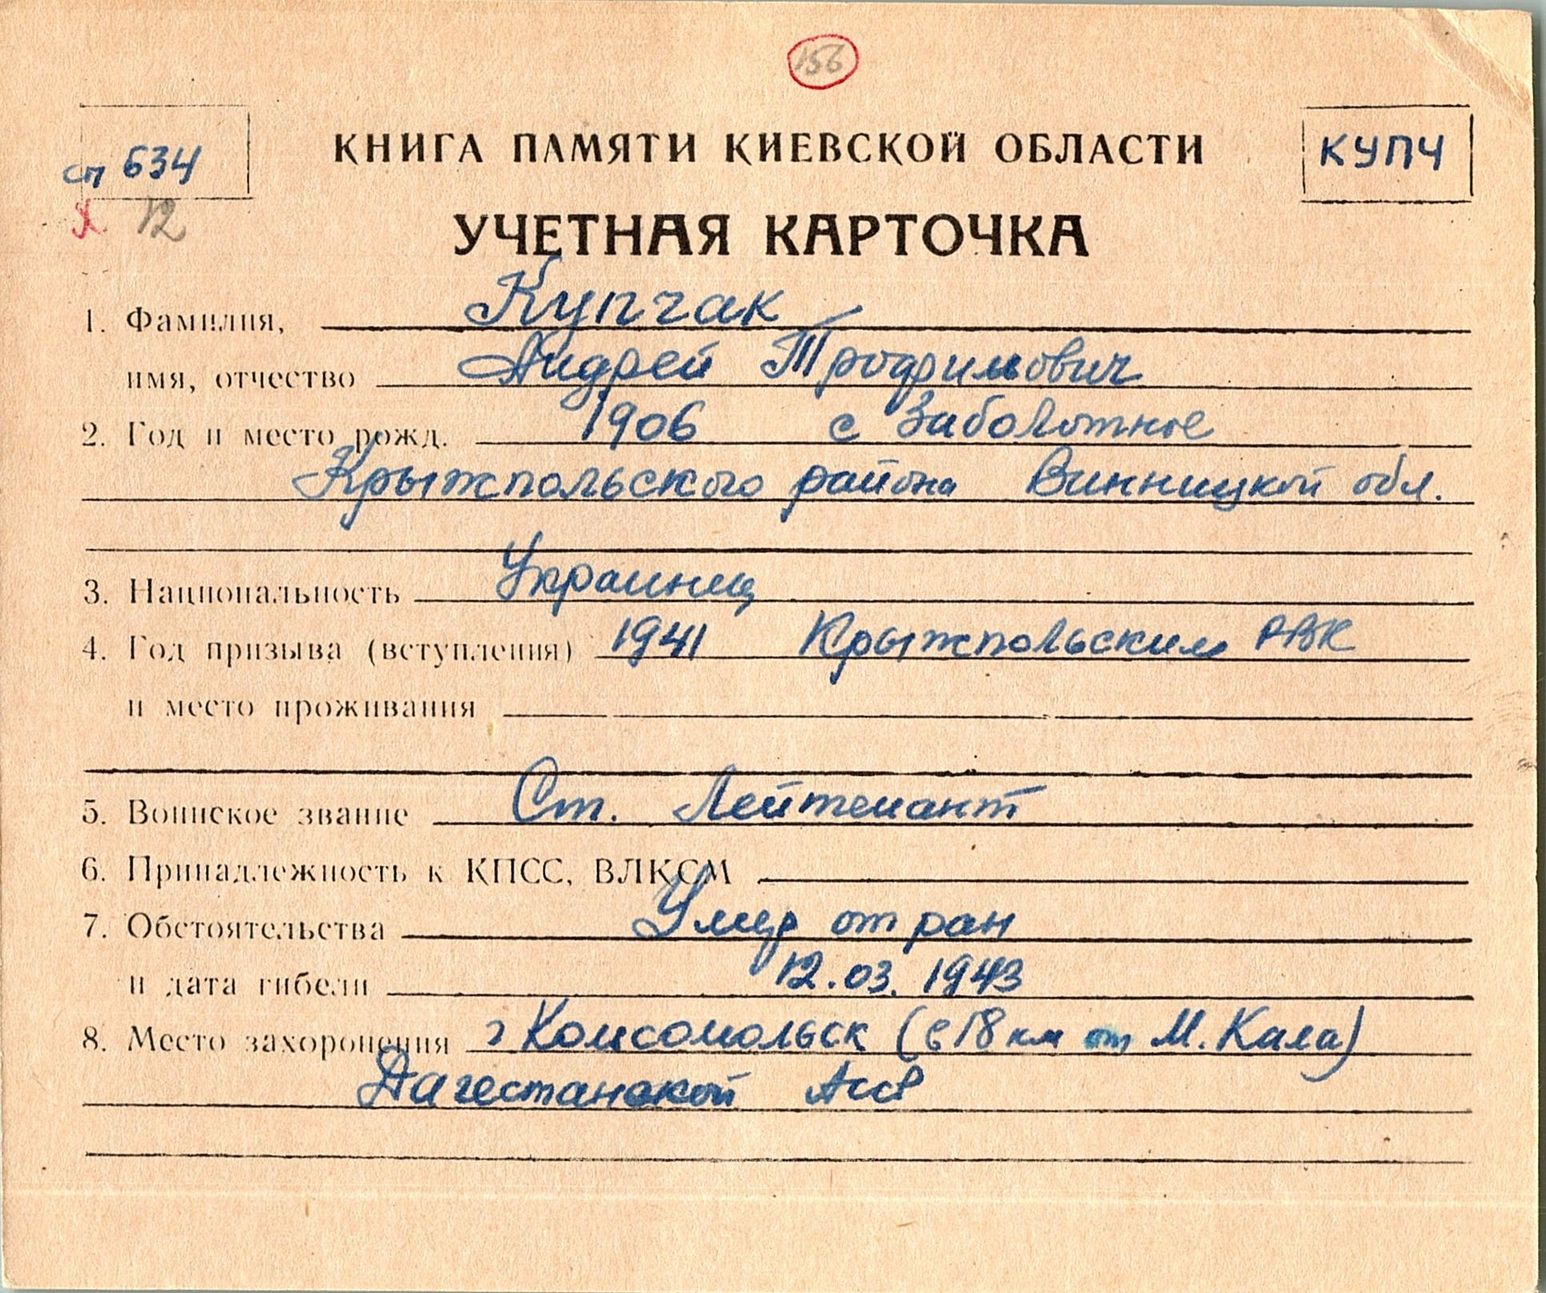 156
сп 634
КНИГА ПАМЯТИ КИЕВСКОЙ ОБЛАСТИ
КУПЧ
х 12
УЧЕТНАЯ КАРТОЧКА
1. Фамилия, Купчак
имя, отчество Андрей Трофимович
2. Год и место рожд. 1906 с Заболотное
Крыжпольского района Винницкой обл.
3. Национальность Украинец
4. Год призыва (вступления) 1941 Крыжпольским РВК
и место проживания
5. Воинское звание Ст. Лейтенант
6. Принадлежность к КПСС, ВЛКСМ
7. Обстоятельства Умер от ран
и дата гибели 12.03.1943
8. Место захоронения г Комсомольск (в 18 км от М. Кала)
Дагестанской АССР